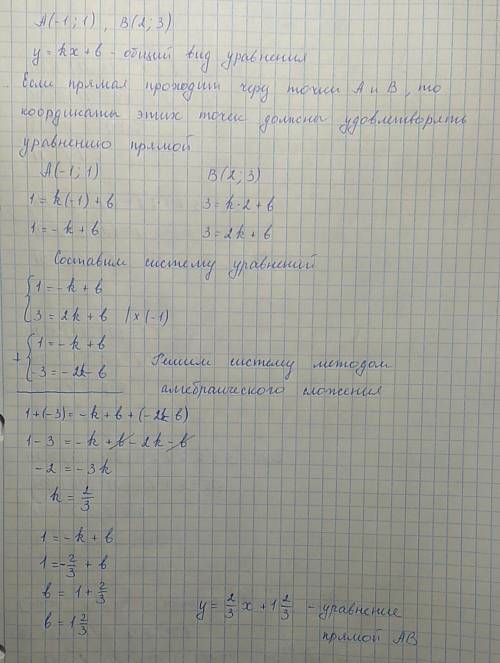 A(-1; 1), B(2; 3)
y = kx + b - общий вид уравнения
Если прямая проходит через точки A и B, то
координаты этих точек должны удовлетворять
уравнению прямой
A(-1; 1)    B(2; 3)
1 = k(-1) + b    3 = k·2 + b
1 = -k + b    3 = 2k + b
Составим систему уравнений
{ 1 = -k + b
{ 3 = 2k + b | x (-1)
+ { 1 = -k + b
{ -3 = -2k - b
Решим систему методом
алгебраического сложения
1 + (-3) = -k + b + (-2k - b)
1 - 3 = -k + b - 2k - b
-2 = -3k
k = 2/3
1 = -k + b
1 = -2/3 + b
b = 1 + 2/3
b = 1 2/3
y = 2/3 x + 1 2/3 - уравнение
прямой AB